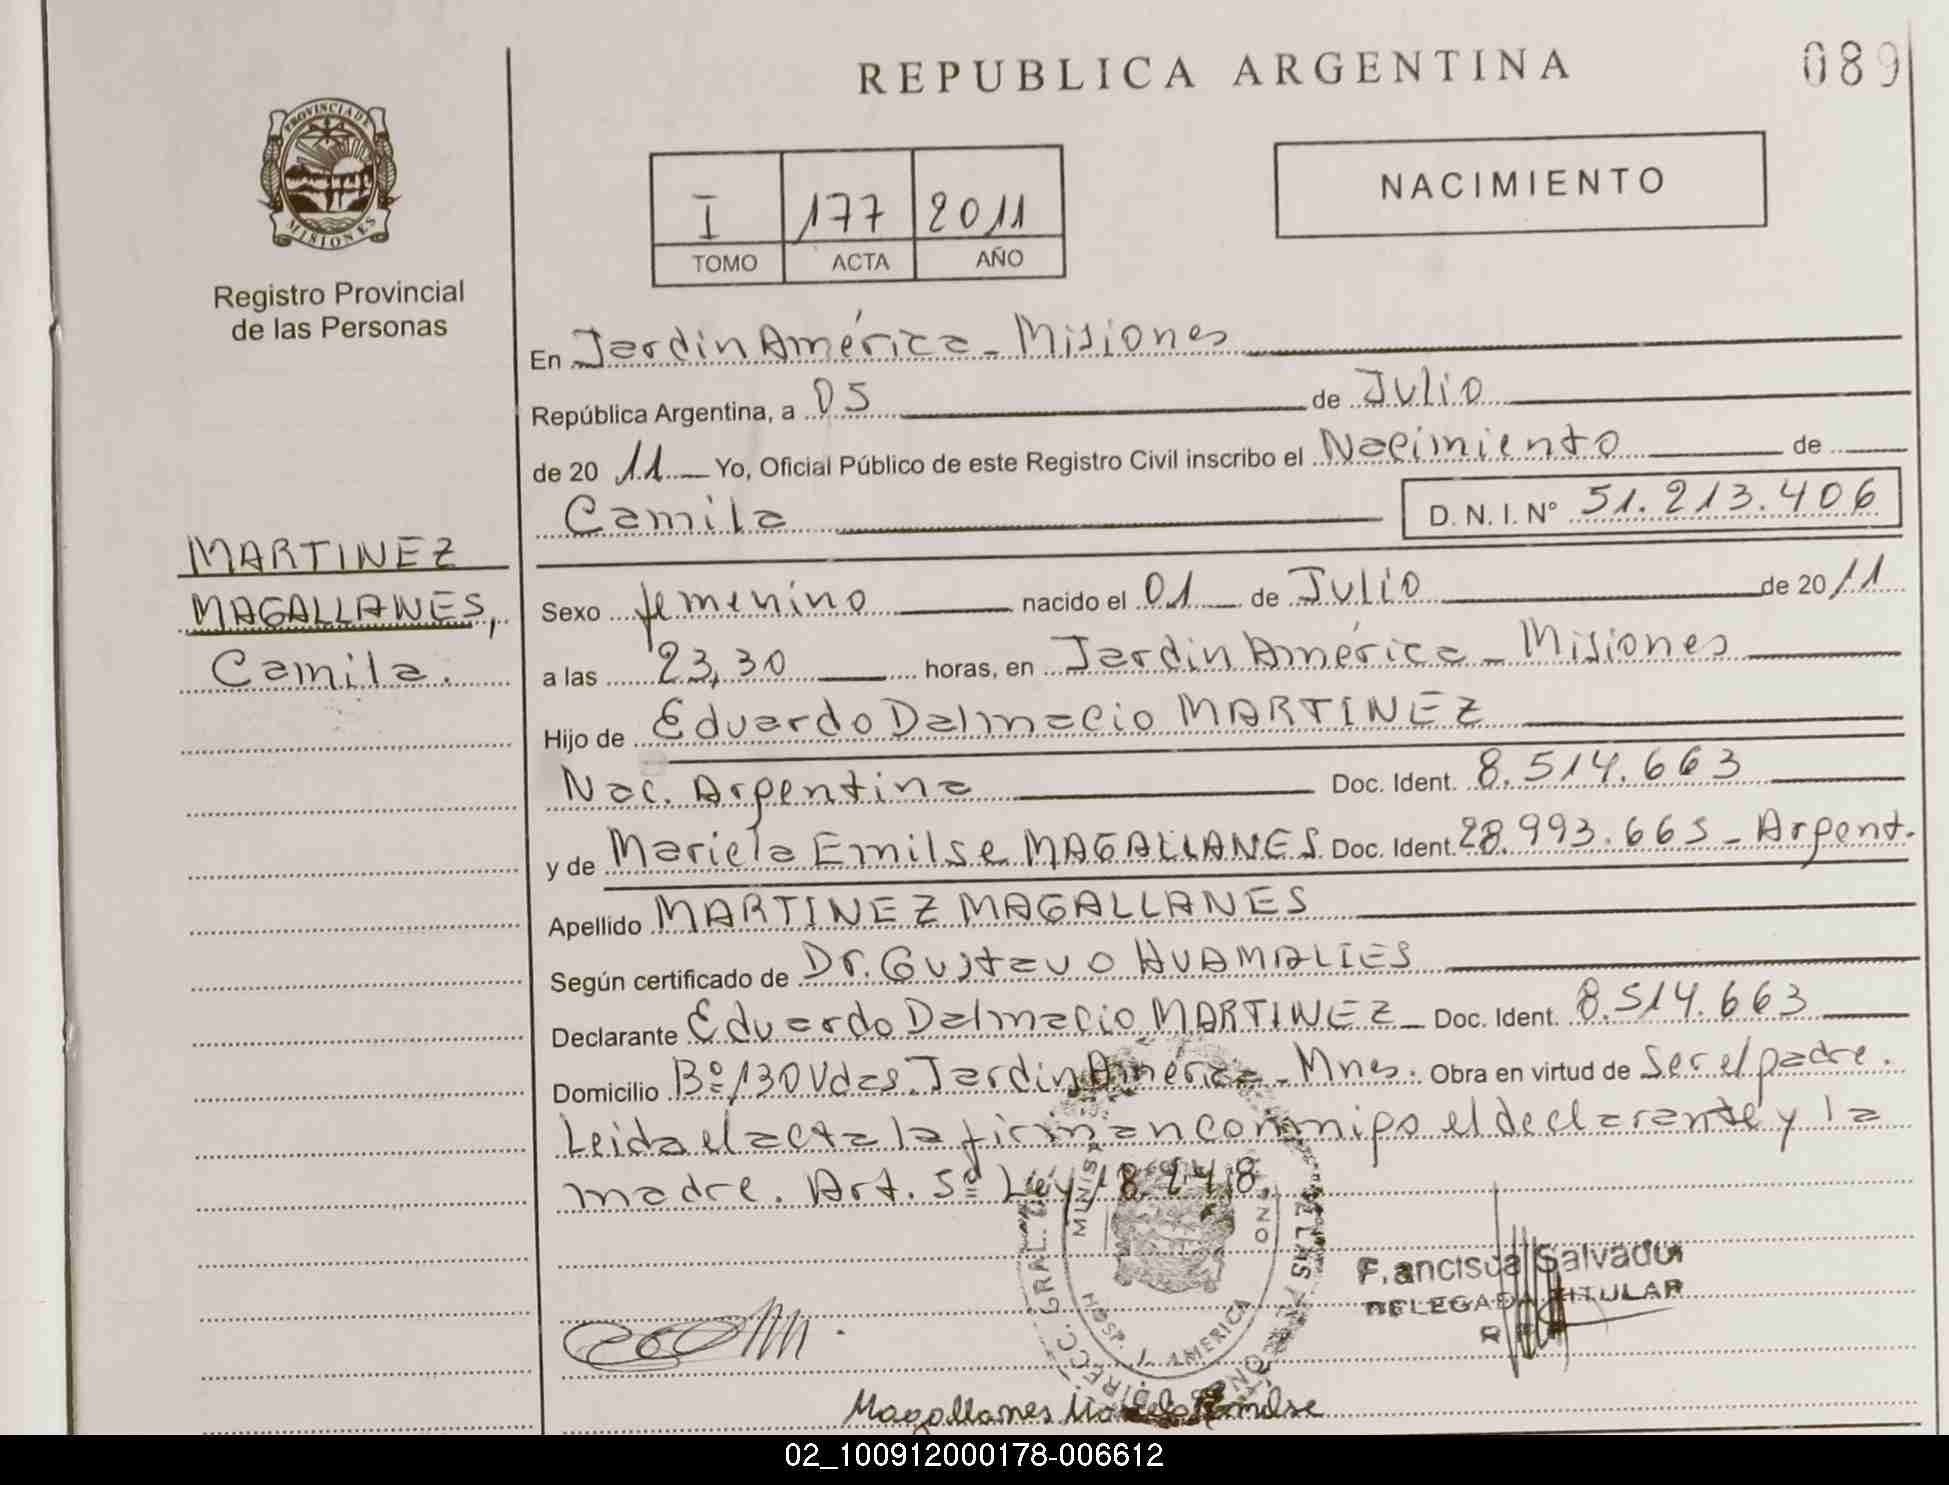 REPUBLICA ARGENTINA
089
PROVINCIA DE
MISIONES
Registro Provincial
de las Personas
I 177 2011
TOMO ACTA AÑO
NACIMIENTO
En Jardin América - Misiones
República Argentina, a 05 de Julio
de 20 11 Yo, Oficial Público de este Registro Civil inscribo el Nacimiento de
Camila D. N. I. Nº 51.213.406
MARTINEZ
MAGALLANES,
Camila.
Sexo femenino nacido el 01 de Julio de 2011
a las 23,30 horas, en Jardin América - Misiones
Hijo de Eduardo Dalmacio MARTINEZ
Nac. Argentina Doc. Ident. 8.514.663
y de Mariela Emilse MAGALLANES. Doc. Ident. 28.993.665 - Argent.
Apellido MARTINEZ MAGALLANES
Según certificado de Dr. Gustavo HUAMALIES
Declarante Eduardo Dalmacio MARTINEZ - Doc. Ident. 8.514.663
Domicilio Bº 130 Vdas. Jardin América - Mnes. Obra en virtud de Ser el padre.
Leida el acta la firman conmigo el declarante y la
madre. Art. 5º Ley 18.248.
DIRECC. GRAL. DE LAS
HOSP. J. AMERICA
Francisca Salvador
DELEGADA TITULAR
Magallanes Mariela Emilse
02_100912000178-006612